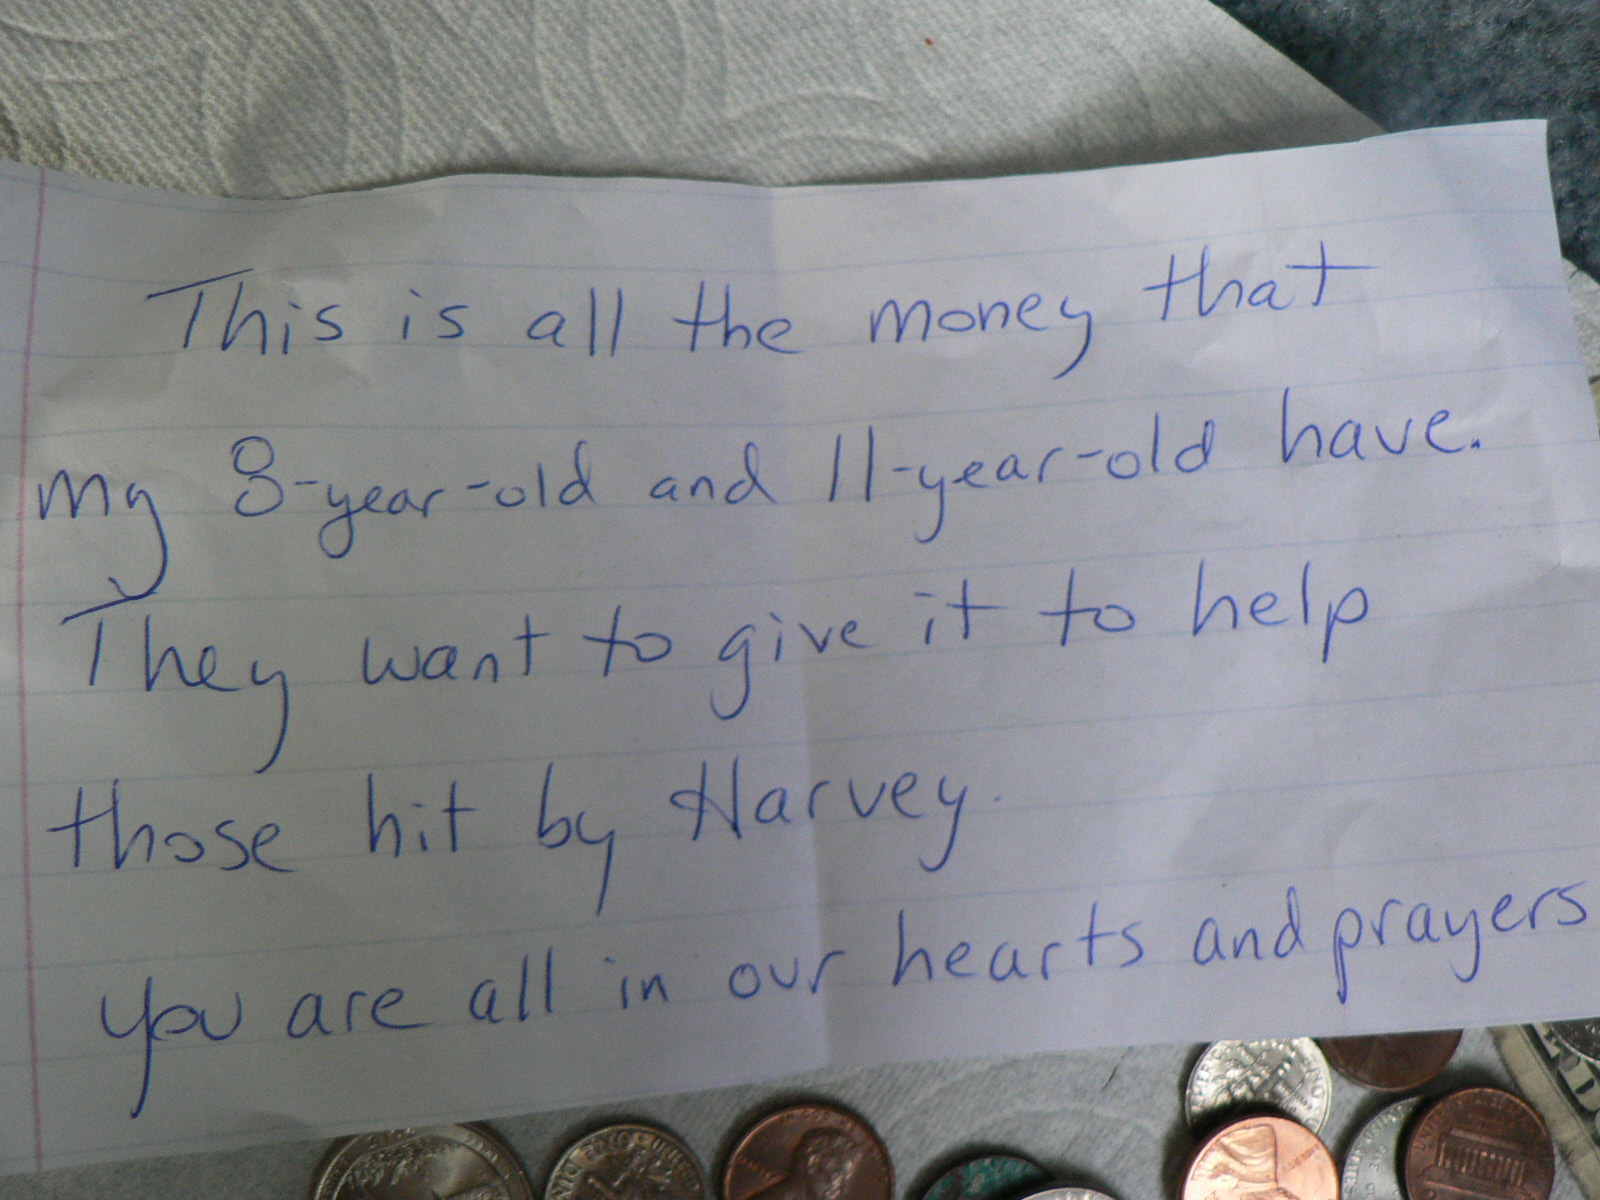 This is all the money that
my 8-year-old and 11-year-old have.
They want to give it to help
those hit by Harvey.
you are all in our hearts and prayers